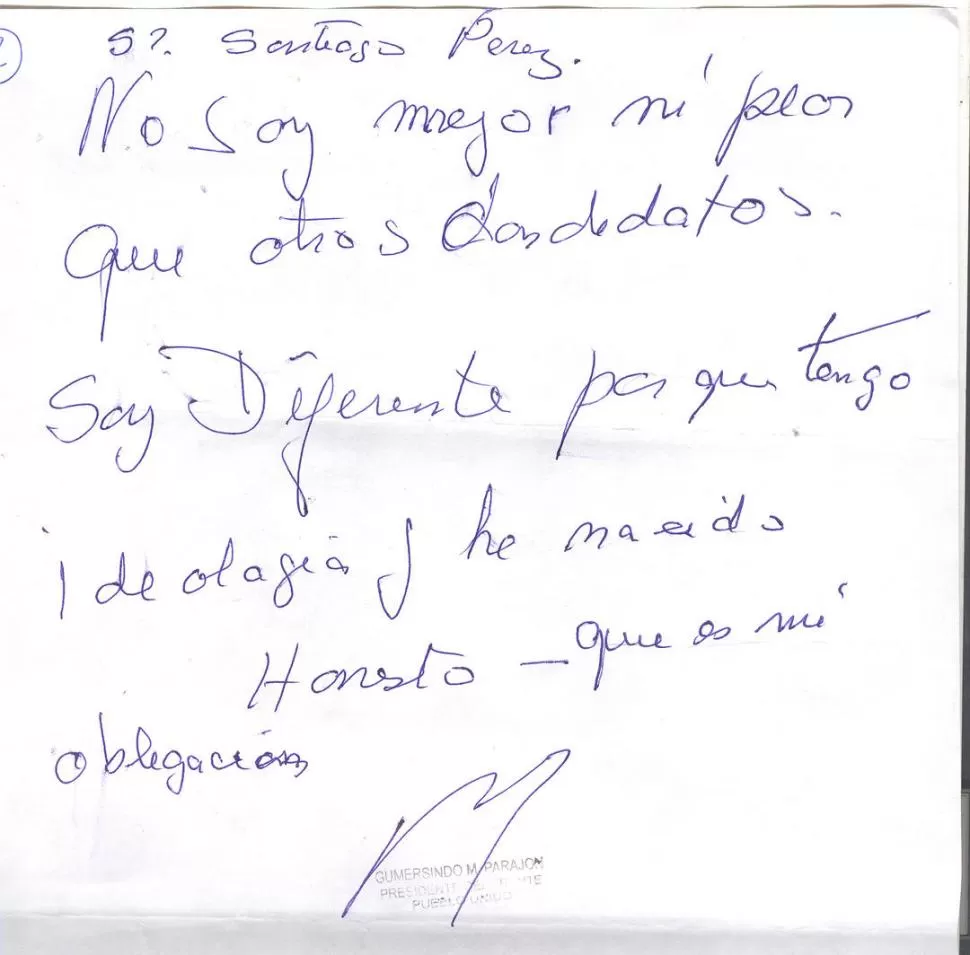 S?. Santiago Perez.
No soy mejor ni peor
que otros Candedatos.
Soy Diferente porque tengo
ideología y he nacido
Honesto – que es mi
oblegación
GUMERSINDO M. PARAJON
PRESIDENTE
PUEBLO UNIDO